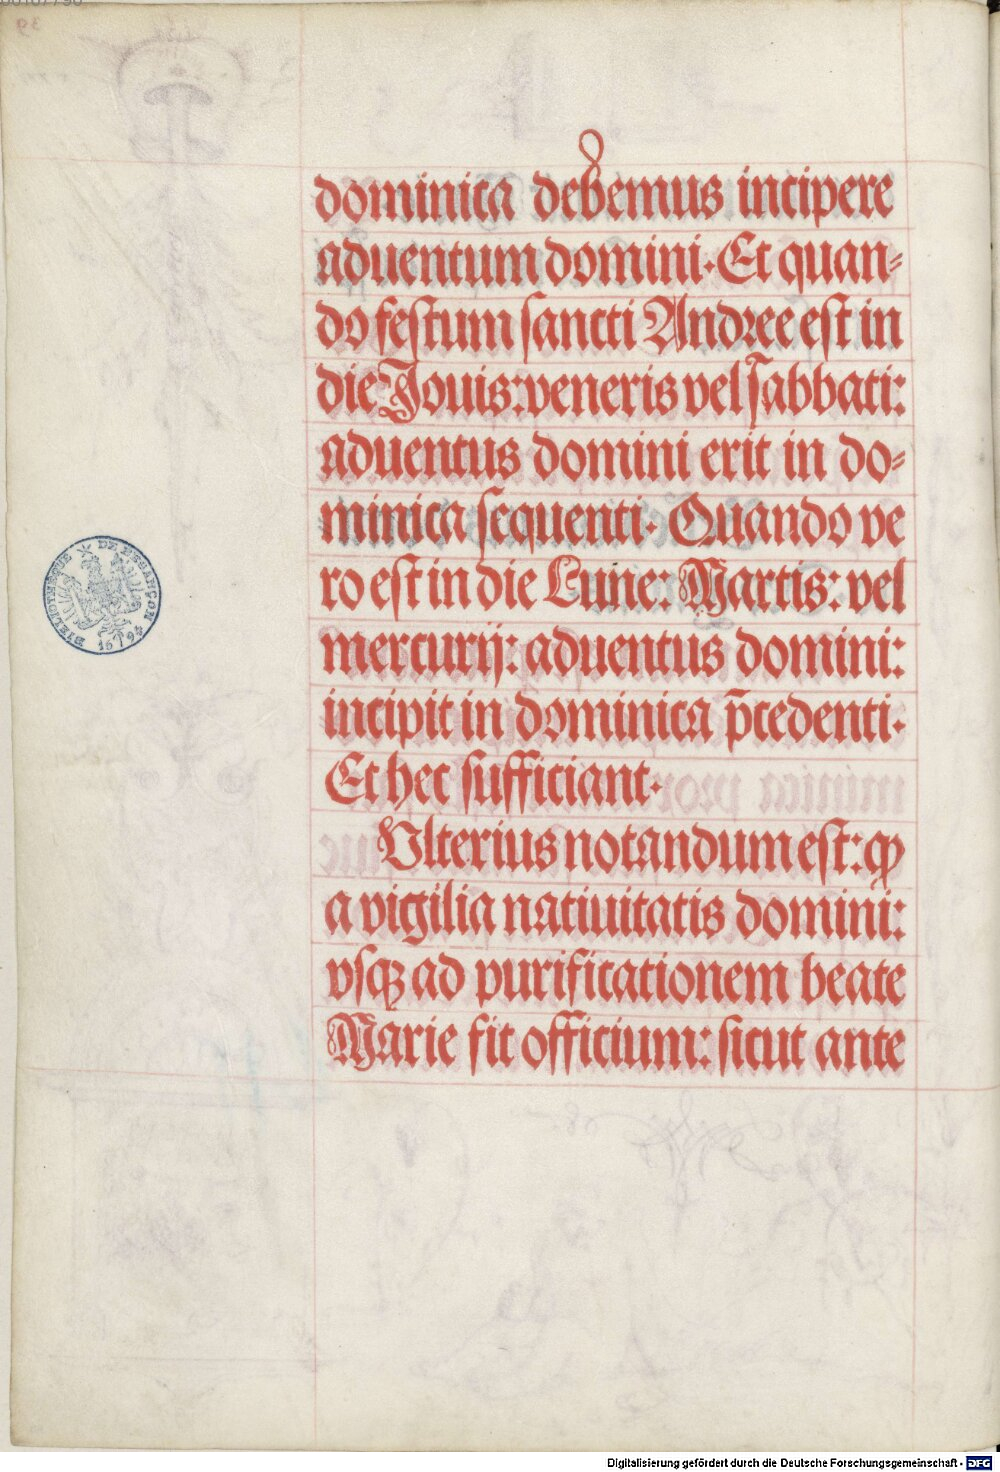 dominica debemus incipere
aduentum domini. Et quan-
do festum sancti Andree est in
die Jouis: veneris vel sabbati:
aduentus domini erit in do-
minica sequenti. Quando ve
ro est in die Lune: Martis: vel
mercurij: aduentus domini:
incipit in dominica p̄cedenti.
Et hec sufficiant.
Vlterius notandum est: ꝙ
a vigilia natiuitatis domini:
vsqꝫ ad purificationem beate
Marie fit officium: sicut ante
BIBLIOTHEQUE DE BESANÇON
1694
39
Digitalisierung gefördert durch die Deutsche Forschungsgemeinschaft - DFG